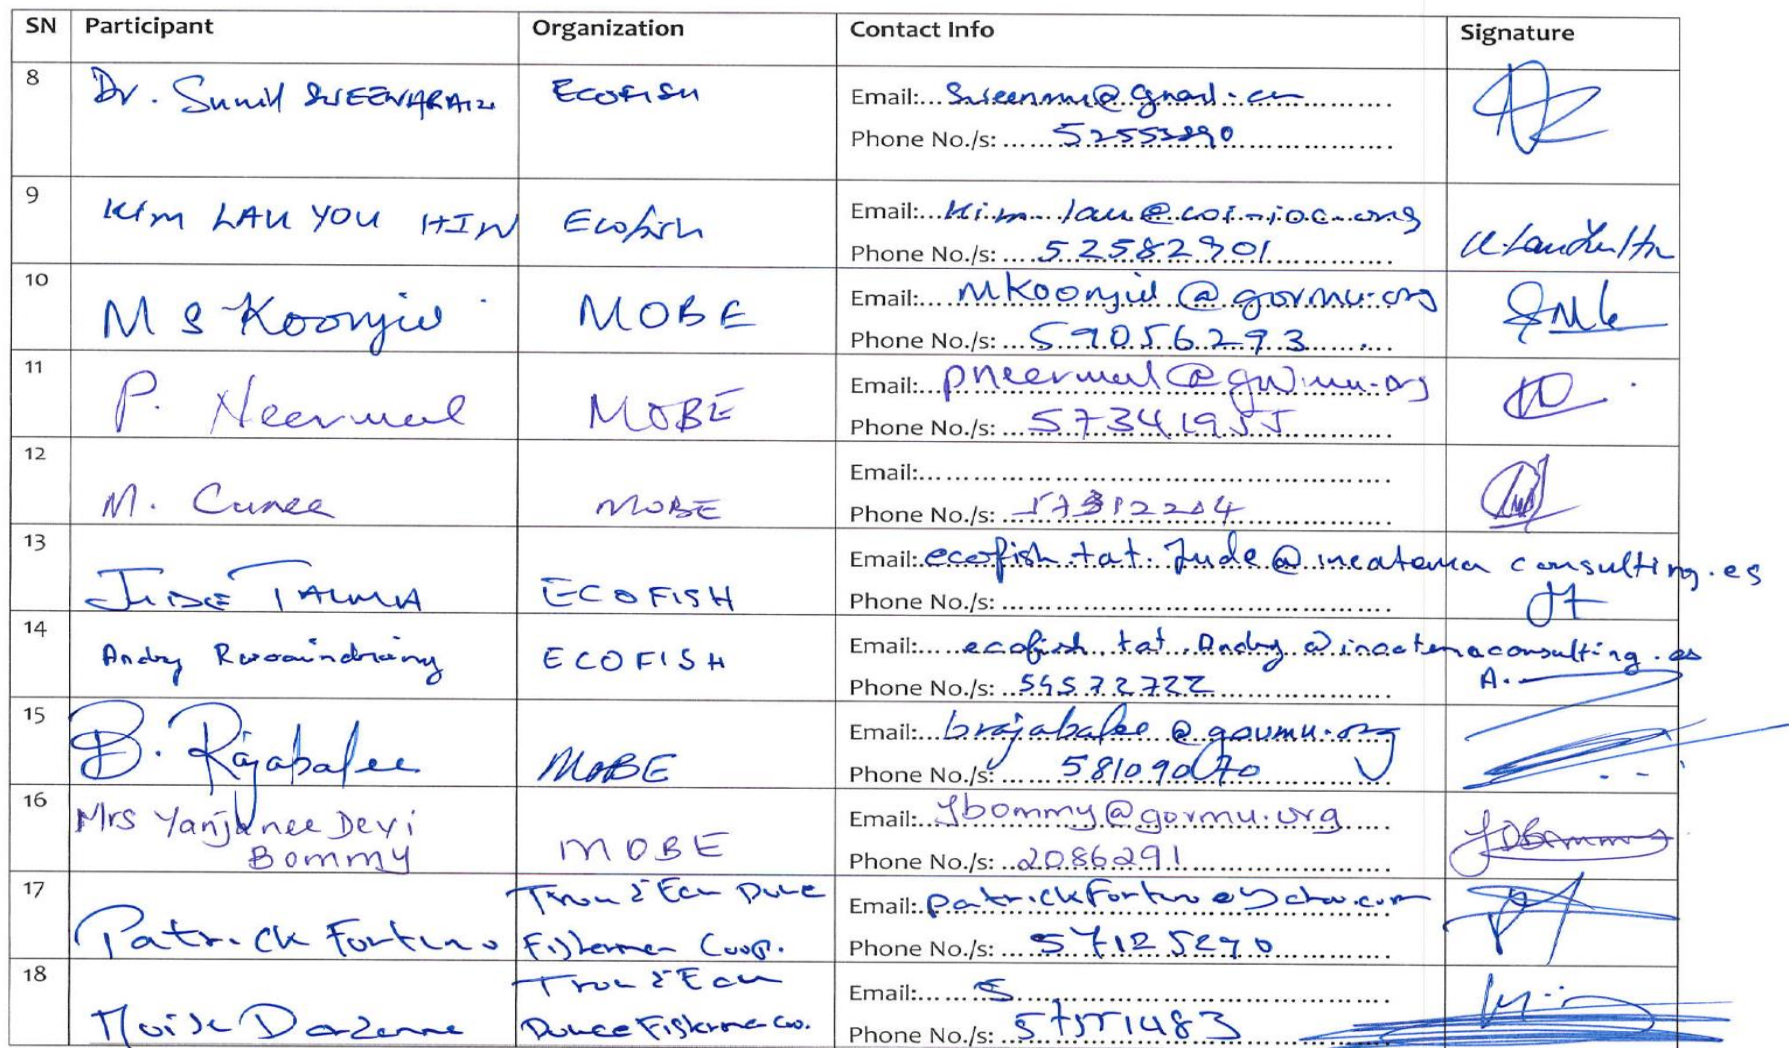 SN Participant Organization Contact Info Signature
8 Dr. Sunil SWEENARAIN ECOFISH
Email:
Phone No./s:
9 Kim LAU YOU HIN Ecofish
Email: Kim.lau@coi-ioc.org
Phone No./s: 52582901
10 M S Koonjul MOBE
Email: Mkoonjul@govmu.org
Phone No./s: 59056293
11 P. Neermul MOBE
Email: pneermul@govmu.org
Phone No./s: 57341955
12 M. Curee MOBE
Email:
Phone No./s:
13 Jude TALMA ECOFISH
Email: ecofish.tat.Jude@ consulting.es
Phone No./s:
JT
14 Andry ECOFISH
Email: ecofish.tat.Andry@
Phone No./s:
A.
15 B. Rajabalee MOBE
Email: brajabalee@govmu.org
Phone No./s: 58109070
16 Mrs Yanjanee Devi
Bommy MOBE
Email: Ybommy@govmu.org
Phone No./s: 2086291
17 Patrick Fortuno Trou d'Eau Duce
Fishermen Coop.
Email:
Phone No./s: 57125290
18 Trou d'Eau
Douce Fisherme Co.
Email:
Phone No./s: 57551483